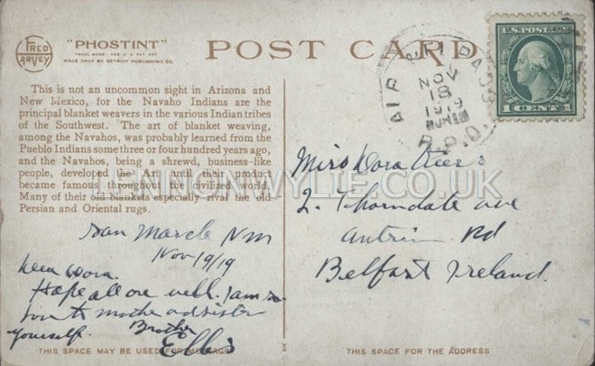 FRED HARVEY
"PHOSTINT"
TRADE MARK REG. U.S. PAT. OFF.
MADE ONLY BY DETROIT PUBLISHING CO.
POST CARD
This is not an uncommon sight in Arizona and
New Mexico, for the Navaho Indians are the
principal blanket weavers in the various Indian tribes
of the Southwest. The art of blanket weaving,
among the Navahos, was probably learned from the
Pueblo Indians some three or four hundred years ago,
and the Navahos, being a shrewd, business-like
people, developed the Art until their product
became famous throughout the civilized world.
Many of their old blankets especially rival the old
Persian and Oriental rugs.
NOV
18
1919
R.P.O.
1 CENT 1
LENNONWYLIE.CO.UK
Miss Dora
2. Thorndale ave
Antrim Rd
Belfast Ireland.
San N.M
Nov 19/19
Dora.
Hope all are well. I am
to mother and sister
yourself. Brother
Ellis
THIS SPACE MAY BE USED FOR MESSAGE
THIS SPACE IS FOR THE ADDRESS